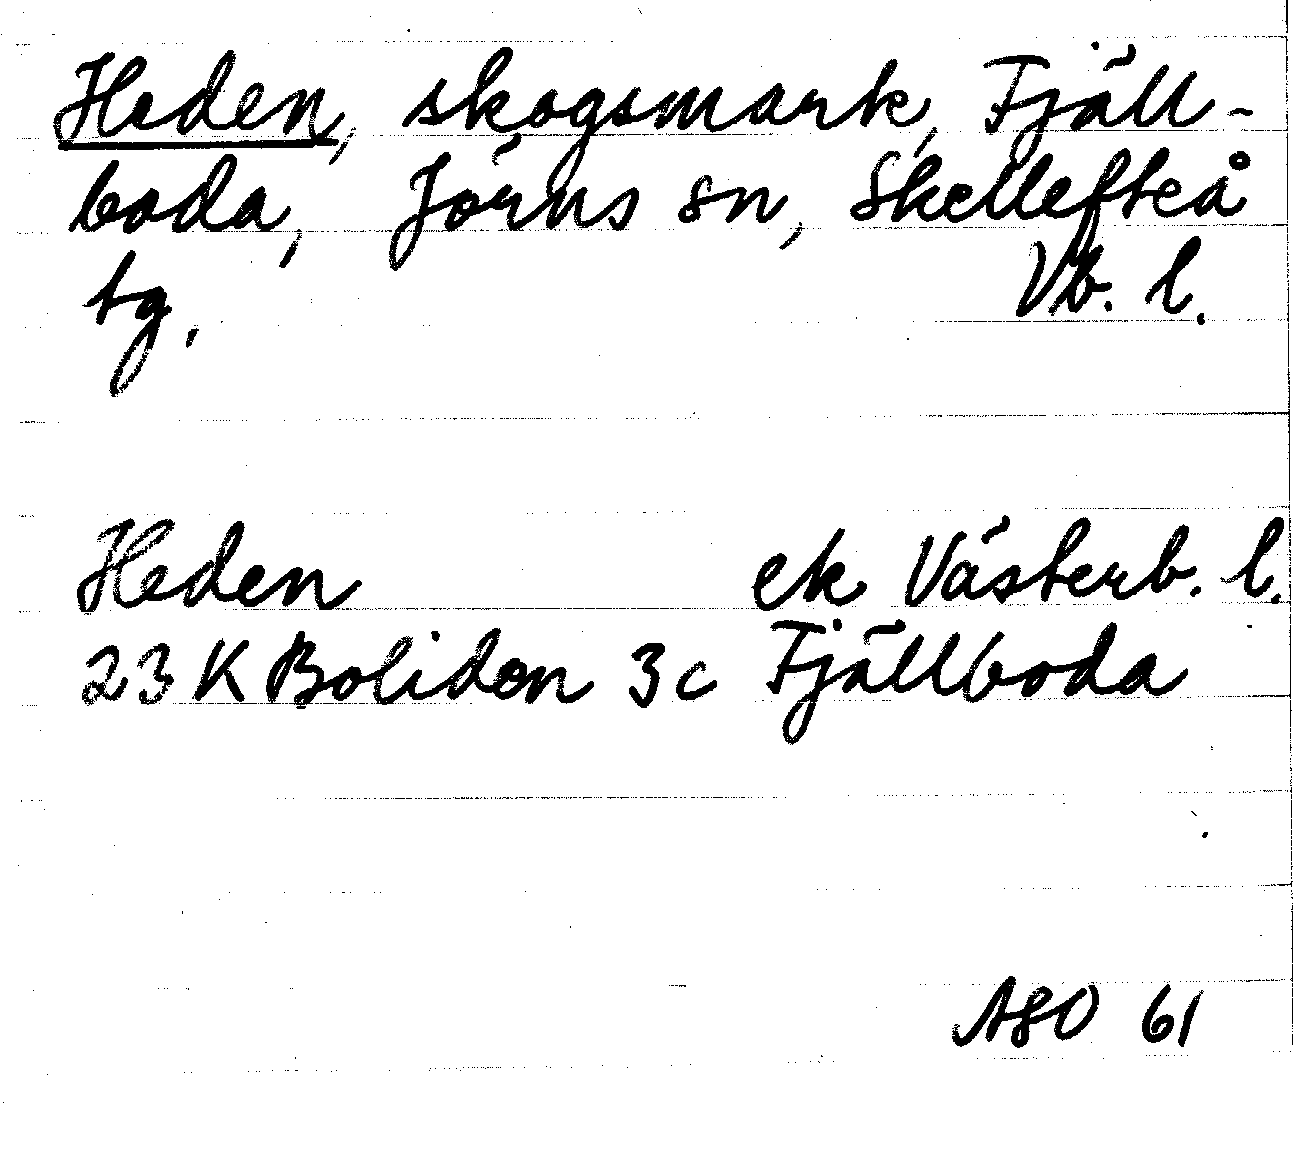 Heden, skogsmark, Fjäll-
boda, Jörns sn, Skellefteå
tg, Vb. l.
Heden ek Västerb. l.
23 K Boliden 3 c Fjällboda
ASO 61